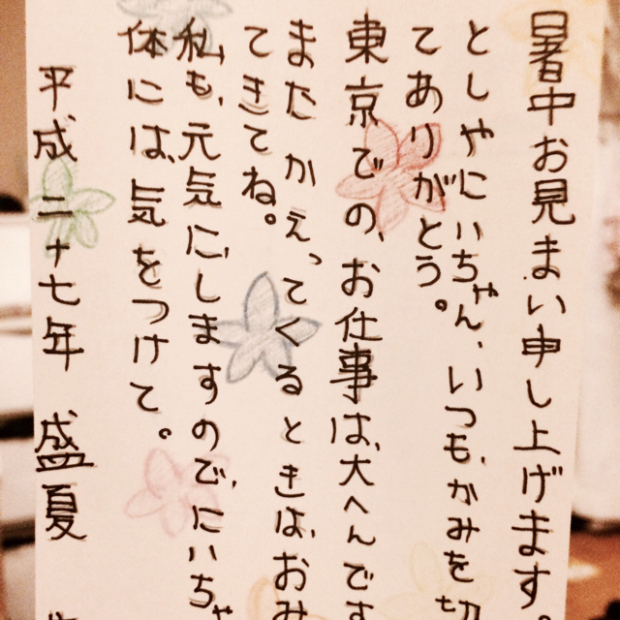 暑中お見まい申し上げます。
としやにいちゃん、いつも、かみを切
てありがとう。
東京での、お仕事は、大へんです
またかえってくるときは、おみ
てきてね。
私も、元気に、しますので、にいちゃ
体には、気をつけて。
平成二十七年 盛夏